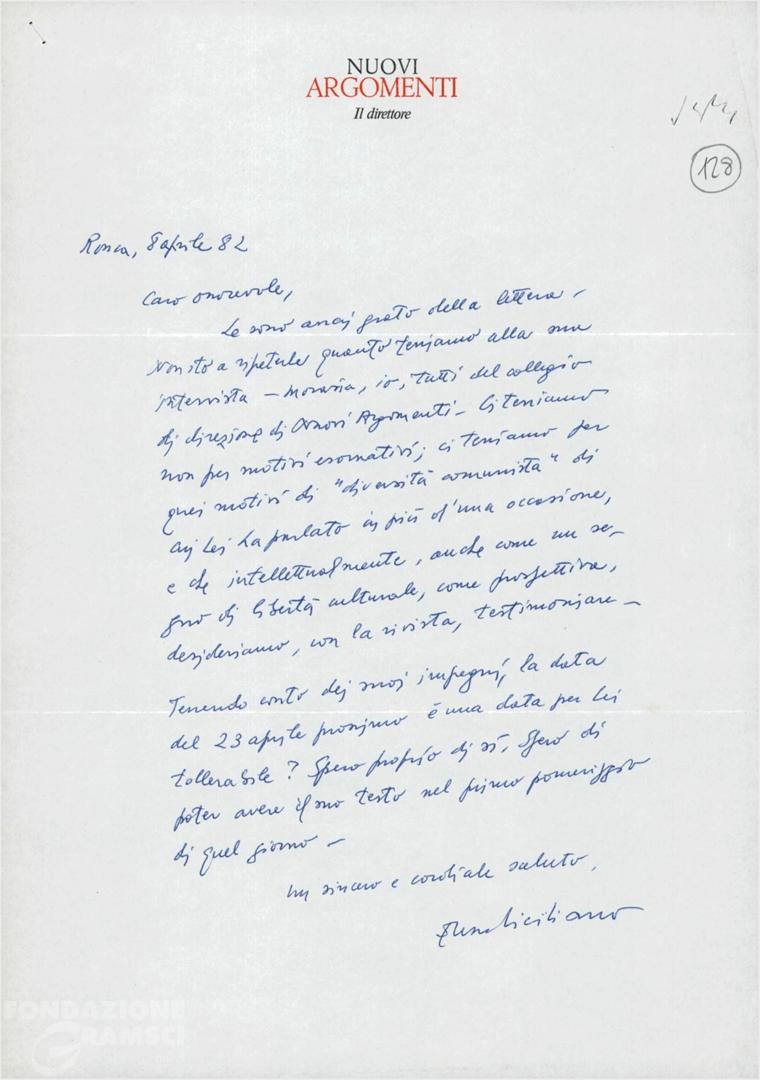 NUOVI
ARGOMENTI
Il direttore
128
Roma, 8 aprile 82
Caro onorevole,
Le sono assai grato della lettera –
Non sto a ripeterle quanto teniamo alla sua
intervista – Moravia, io, tutti del collegio
di direzione di Nuovi Argomenti – Ci teniamo
non per motivi esornativi; ci teniamo per
quei motivi di "diversità comunista" di
cui Lei ha parlato in più d'una occasione,
e che intellettualmente, anche come un se-
gno di libertà culturale, come prospettiva,
desideriamo, con la rivista, testimoniare –
Tenendo conto dei suoi impegni, la data
del 23 aprile prossimo è una data per Lei
tollerabile? Spero proprio di sì. Spero di
poter avere il suo testo nel primo pomeriggio
di quel giorno –
un sincero e cordiale saluto,
Enzo Siciliano
FONDAZIONE
GRAMSCI